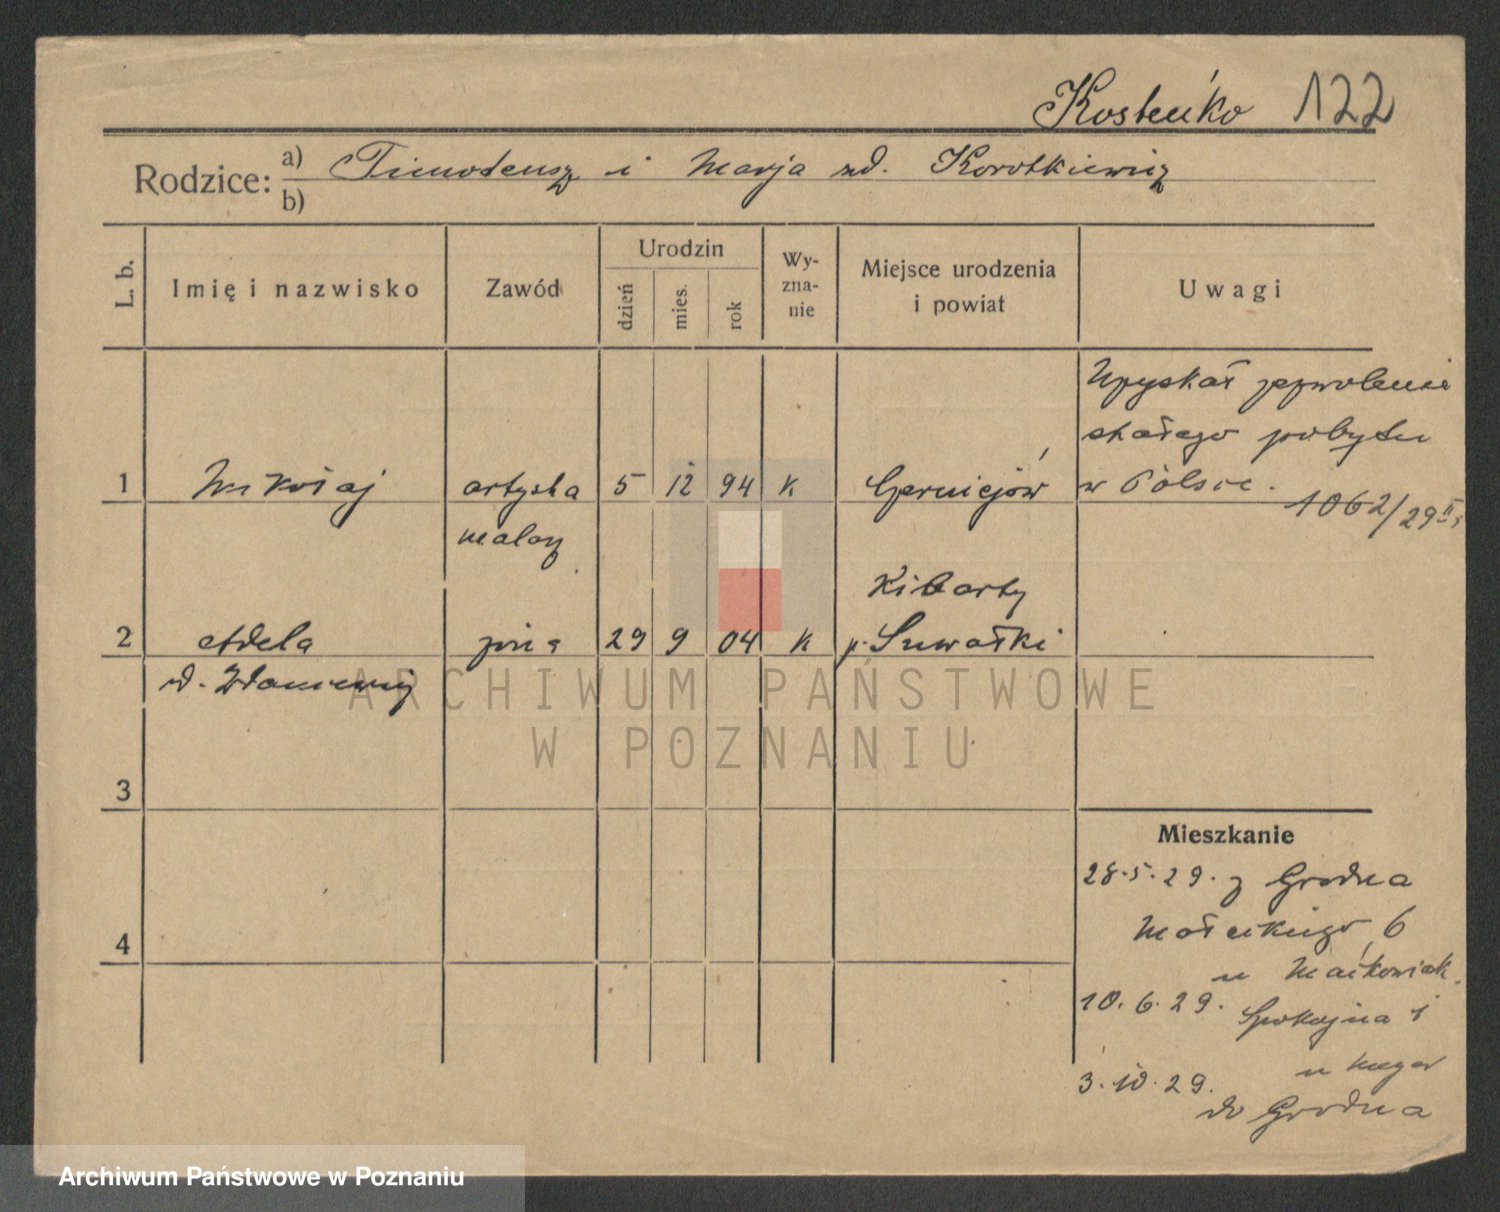 Kosteńko 122
Rodzice: a) Timoteusz i Marja zd. Korotkiewicz
b)
L. b. Imię i nazwisko Zawód Urodzin dzień mies. rok Wy-zna-nie Miejsce urodzenia i powiat Uwagi
Uzyskał zezwolenie
stałego pobytu
1 Mikołaj artysta 5 12 94 K Czerniejów w Polsce.
1062/29 II
malarz
Kibarty
2 Adela żona 29 9 04 K p. Suwałki
3
4
Mieszkanie
28.5.29. z Grodna
Małeckiego 6
u Maćkowiak
10.6.29. Spokojna 1
u
3.10.29.
do Grodna
ARCHIWUM PAŃSTWOWE
W POZNANIU
Archiwum Państwowe w Poznaniu